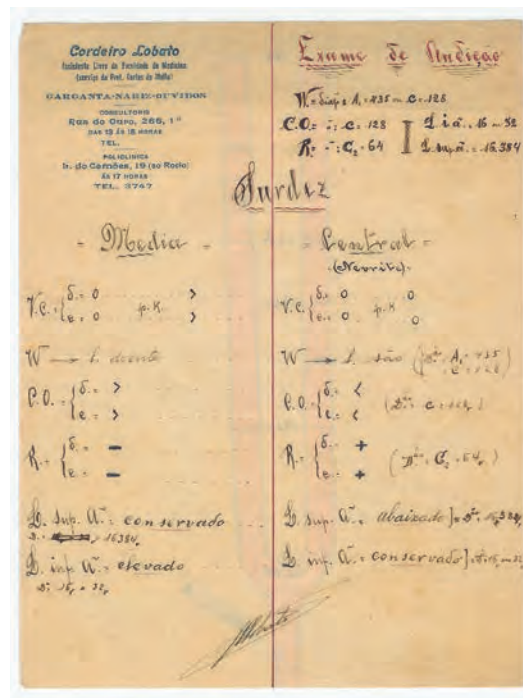 Cordeiro Lobato
Assistente Livre da Faculdade de Medicina
(serviço do Prof. Carlos de Mello)
GARGANTA-NARIZ-OUVIDOS
CONSULTORIO
Rua do Ouro, 266, 1º
DAS 13 ÁS 15 HORAS
TEL.
POLICLINICA
L. do Camões, 19 (ao Rocio)
ÁS 17 HORAS
TEL. 3747
Exame de Audição
W.= A₁=435 C=128
C.O.= C=128
R.= C₂=64
L. sup. = 16.384
Surdez
= Media =
V.C. { d.= 0 >
e.= 0 p.K. >
W → l. doente
C.O. { d.= >
e.= >
R. { d.= −
e.= −
L. sup. A.= conservado
16384
L. inf. A.= elevado
= Central =
(Nevrite)
V.C. { d.= 0 0
e.= 0 p.K. 0
W → l. são A₁=435
C=128
C.O. { d.= <
e.= <
R. { d.= +
e.= + C₂=64
L. sup. A.= abaixado
L. inf. A.= conservado